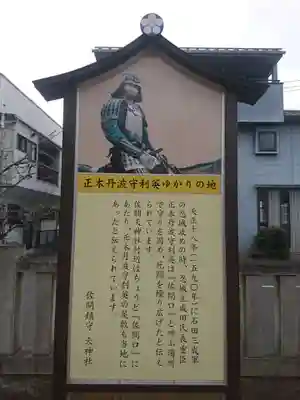 正木丹波守利英ゆかりの地
天正十八年（一五九〇年）に石田三成軍
の忍城攻めの時、忍城主成田氏の重臣
正木丹波守利英は「佐間口」と呼ぶ場所
で守りを固め、死闘を繰り広げたと伝え
られています。
佐間天神社付近はちょうど「佐間口」に
あたり、正木丹波守利英の屋敷も当地に
あったと伝えられています。
佐間鎮守 天神社